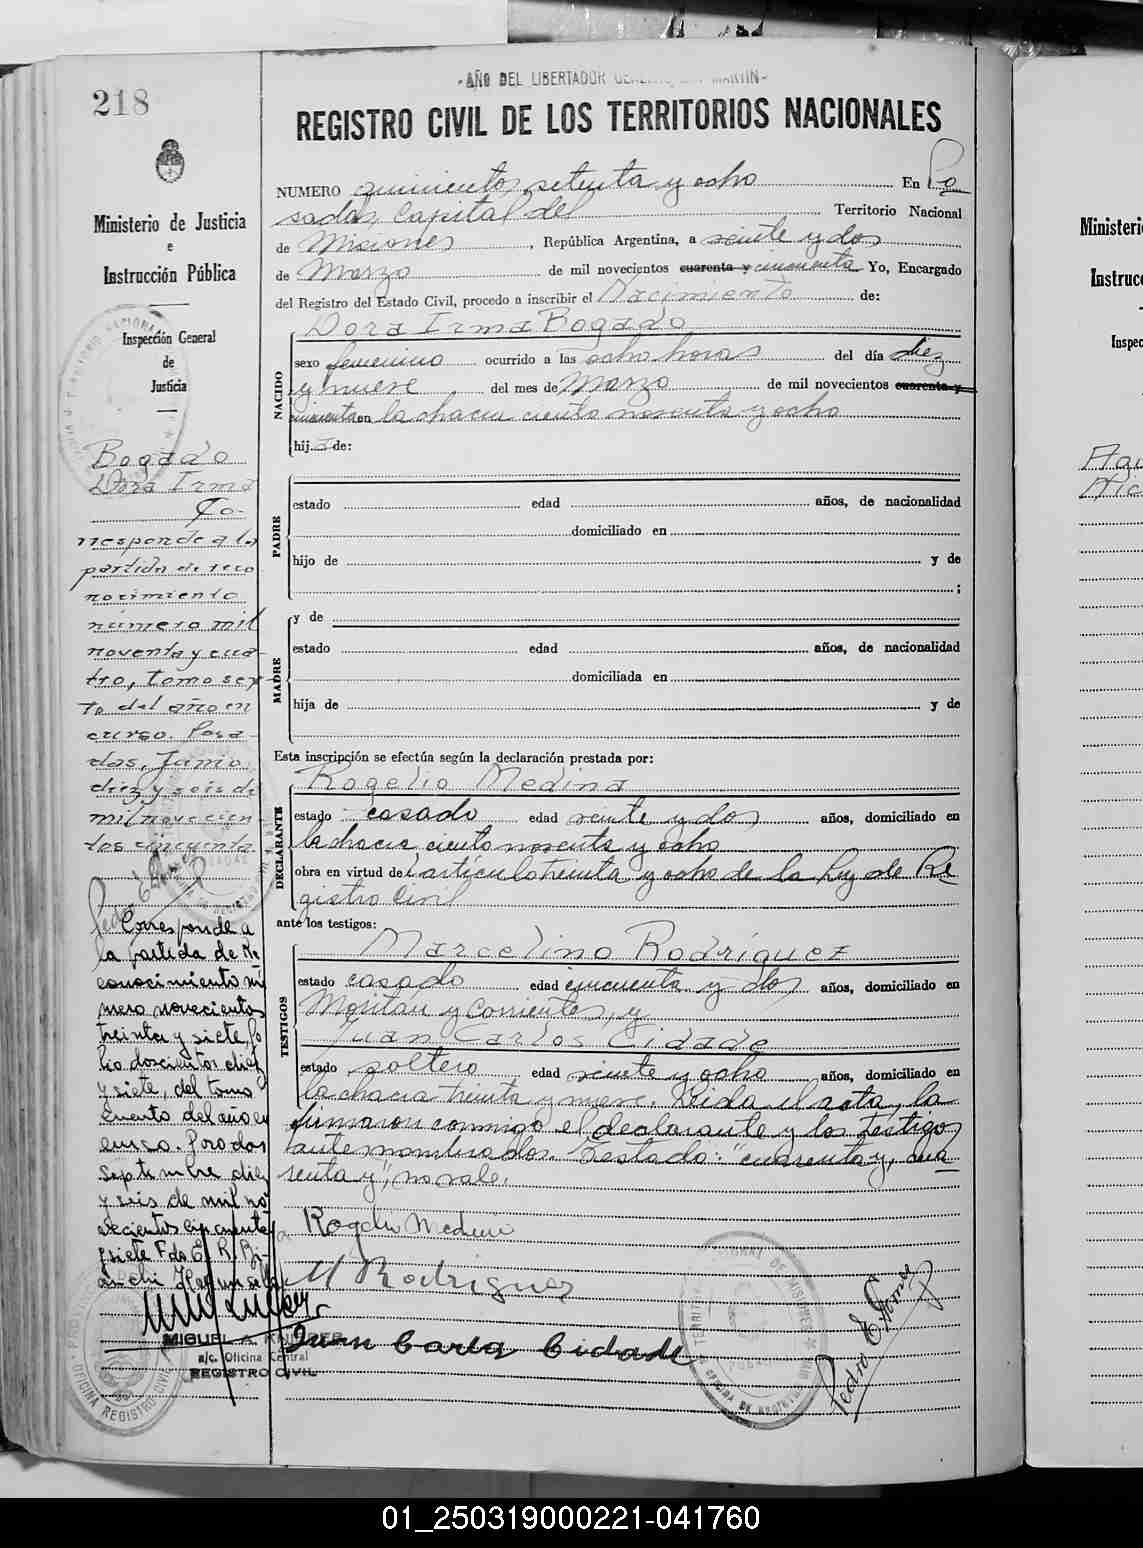 218
-AÑO DEL LIBERTADOR GENERAL SAN MARTIN-
REGISTRO CIVIL DE LOS TERRITORIOS NACIONALES
Ministerio de Justicia
e
Instrucción Pública
Inspección General
de
Justicia
NUMERO quinientos setenta y ocho En Po
sadas, Capital del Territorio Nacional
de Misiones, República Argentina, a veinte y dos
de Marzo de mil novecientos cuarenta y cincuenta Yo, Encargado
del Registro del Estado Civil, procedo a inscribir el Nacimiento de:
Dora Irma Bogado
NACIDO
sexo femenino ocurrido a las ocho horas del día diez
y nueve del mes de Marzo de mil novecientos cuarenta y
cincuenta en la chacra ciento noventa y ocho
hij a de:
PADRE
estado edad años, de nacionalidad
domiciliado en
hijo de y de
;
MADRE
y de
estado edad años, de nacionalidad
domiciliada en
hija de y de
Esta inscripción se efectúa según la declaración prestada por:
Rogelio Medina
DECLARANTE
estado casado edad veinte y dos años, domiciliado en
la chacra ciento noventa y ocho
obra en virtud del artículo treinta y ocho de la Ley de Re
gistro Civil
ante los testigos:
Marcelino Rodríguez
TESTIGOS
estado casado edad cincuenta y dos años, domiciliado en
Moritán y Corrientes, y
Juan Carlos Cidade
estado soltero edad veinte y ocho años, domiciliado en
la chacra treinta y nueve. Leida el acta, la
firmaron conmigo el declarante y los testigos
antenombrados. Testado: "cuarenta y, cua
renta y", no vale.
Rogelio Medina
M Rodriguez
Juan Carlos Cidade
Pedro E. Gomez
Bogado
Dora Irma
Co-
rresponde a la
partida de reco
nocimiento
número mil
noventa y cua-
tro, tomo sex
to del año en
curso. Posa-
das, Junio
diez y seis de
mil novecien
tos cincuenta.
Corresponde a
la partida de Re
conocimiento nú
mero novecientos
treinta y siete, fo
lio doscientos diez
y siete, del tomo
cuarto del año en
curso. Posadas
Septiembre diez
y seis de mil no
vecientos cincuenta
y siete Fdo E. R. Bi-
anchi
MIGUEL A.
a/c. Oficina Central
REGISTRO CIVIL
OFICINA REGISTRO CIVIL
Ministeri
Instrucc
Inspec
01_250319000221-041760